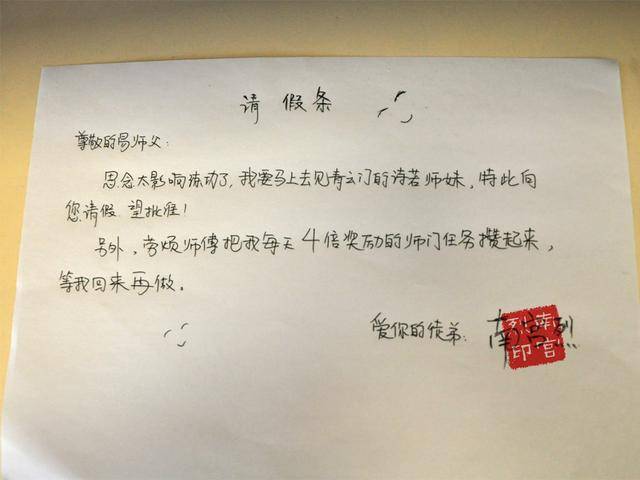 请假条
尊敬的易师父：
思念太影响练功了，我要马上去见青云门的诗若师妹，特此向
您请假 望批准！
另外，劳烦师傅把我每天4倍奖励的师门任务攒起来，
等我回来再做。
爱你的徒弟：南宫烈
南宫
烈印